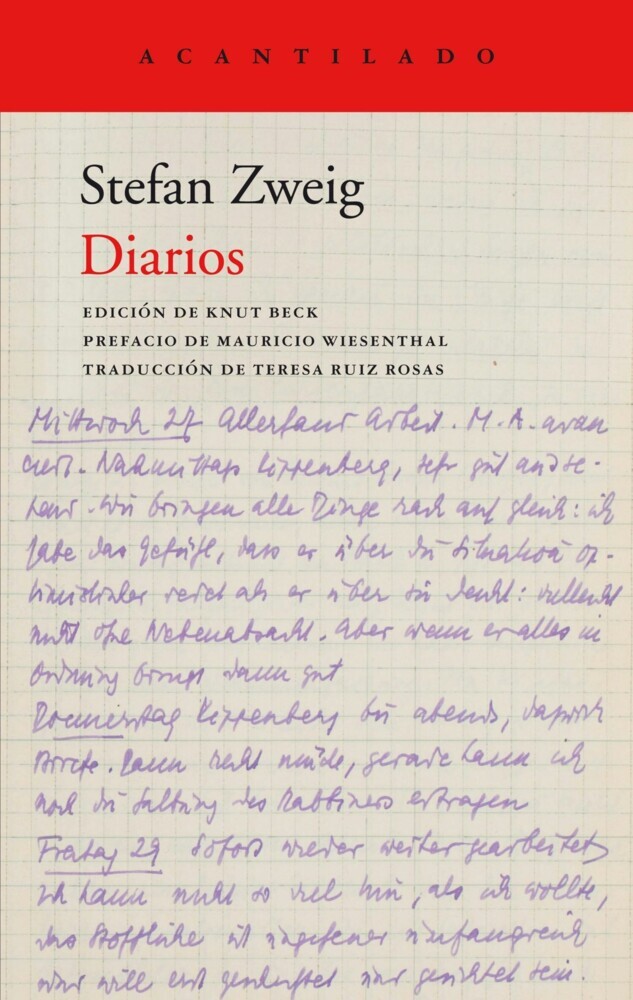 ACANTILADO
Stefan Zweig
Diarios
EDICIÓN DE KNUT BECK
PREFACIO DE MAURICIO WIESENTHAL
TRADUCCIÓN DE TERESA RUIZ ROSAS
Mittwoch 27 Allerhand Arbeit. M. A. avan
ciert. Nachmittags Kippenberg, sehr gut
Wir bringen alle Dinge rasch auf gleich: ich
habe das Gefühl, dass er über die Situation op-
timistischer redet als er über sie denkt: vielleicht
nicht ohne Nebenabsicht. Aber wenn er alles in
Ordnung bringt dann gut
Donnerstag Kippenberg bis abends,
Briefe. Dann recht müde, gerade kann ich
noch die Salbung des Rabbiners ertragen
Freitag 29 Sofort wieder weiter gearbeitet
ich kann nicht so viel tun, als ich wollte,
das Stoffliche ist ungeheuer umfangreich
und will erst gesichtet sein.